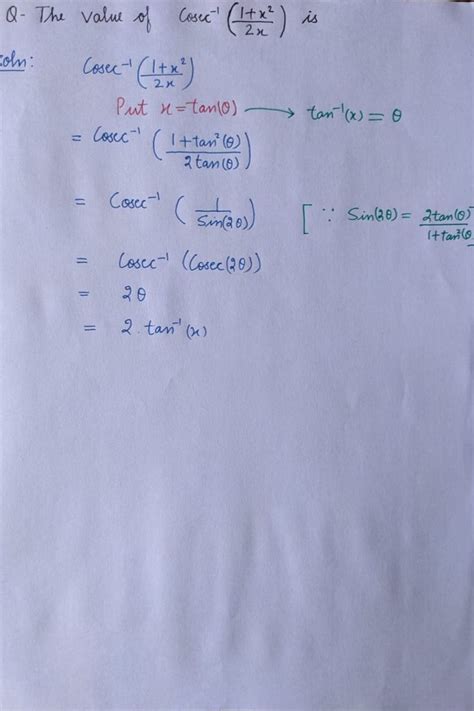 Q- The value of Cosec⁻¹ ((1+x²)/(2x)) is
Soln: Cosec⁻¹ ((1+x²)/(2x))
Put x = tan(θ) ⟶ tan⁻¹(x) = θ
= Cosec⁻¹ ((1+tan²(θ))/(2tan(θ)))
= Cosec⁻¹ (1/Sin(2θ)) [∵ Sin(2θ) = 2tan(θ)/1+tan²(θ
= Cosec⁻¹ (Cosec(2θ))
= 2θ
= 2.tan⁻¹(x)